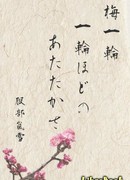 梅一輪
一輪ほどの
あたたかさ
服部嵐雪